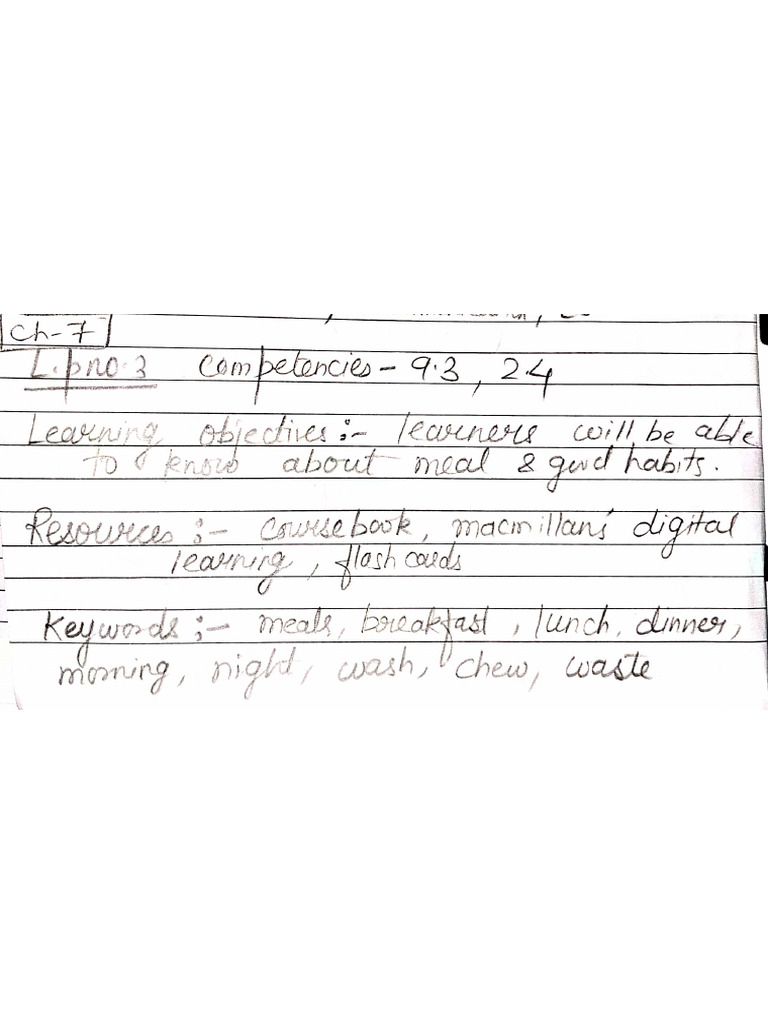 Ch-7
L.p no.3 Competencies - 9.3, 2.4
Learning objectives :- learners will be able
to know about meal & good habits.
Resources :- coursebook, macmillan's digital
learning, flash cards
Keywords :- meals, breakfast, lunch, dinner,
morning, night, wash, chew, waste